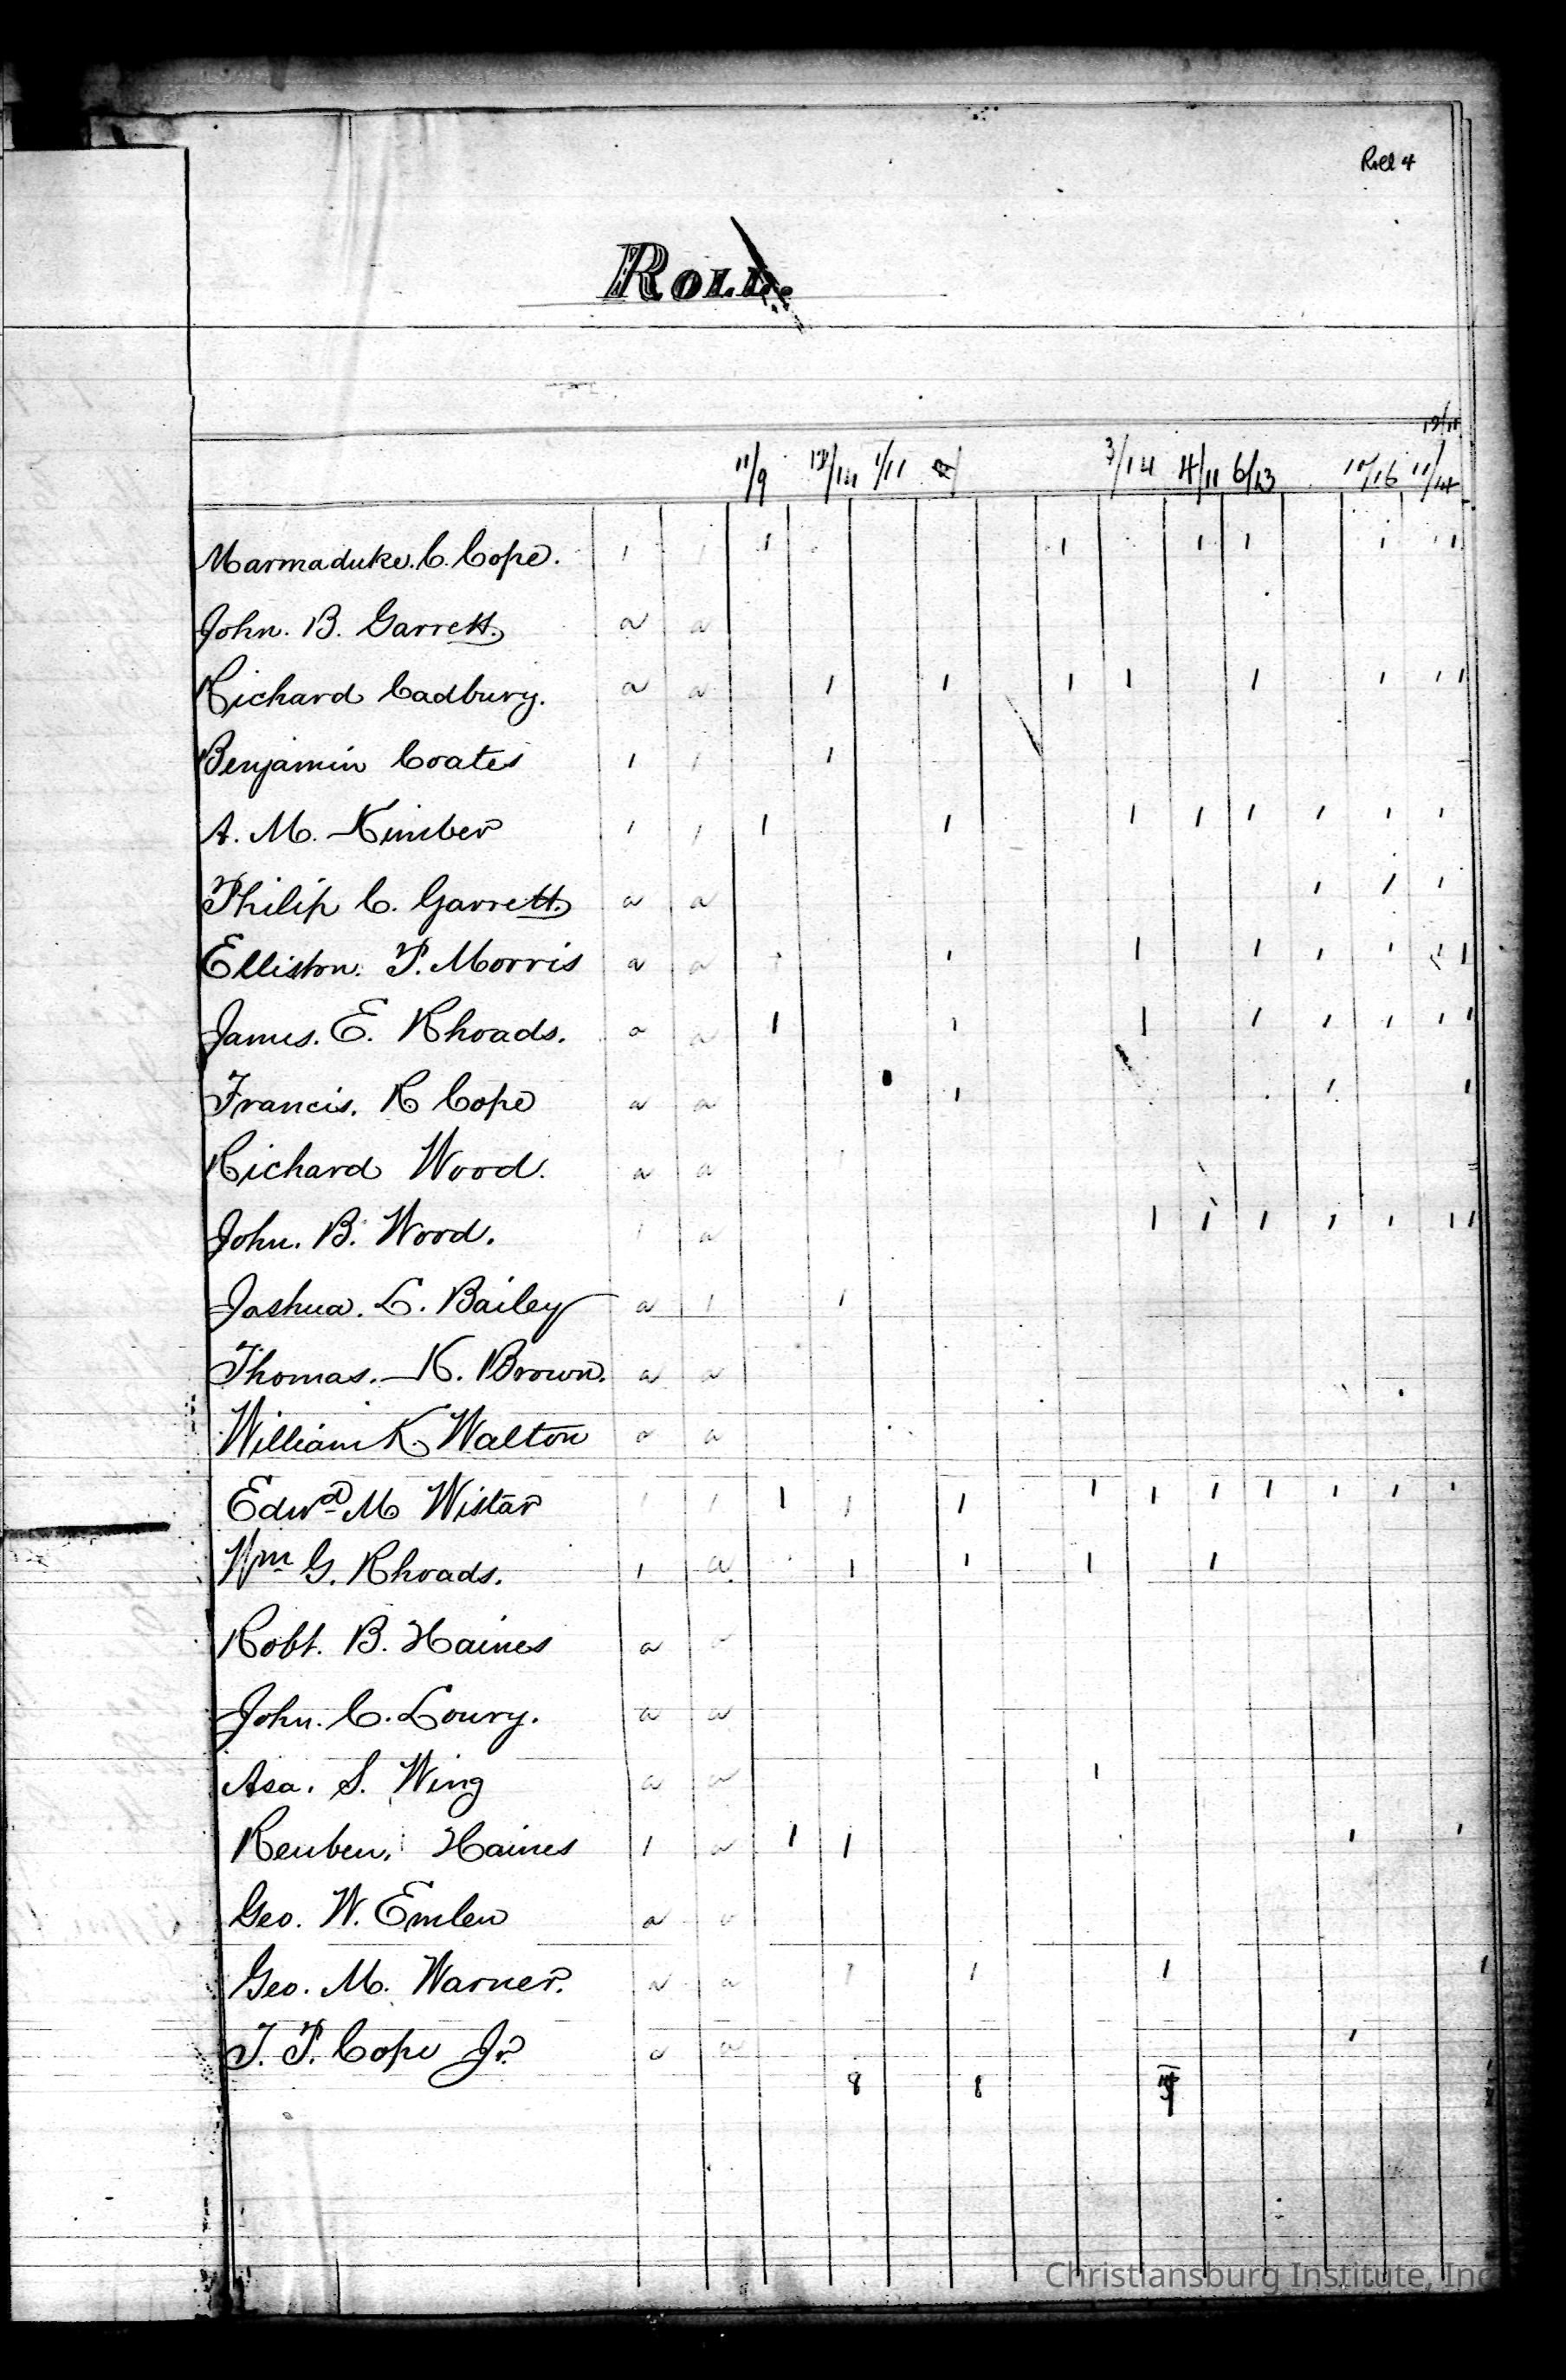 Roll 4
ROLL.
12/11
11/9 12/14 1/11 3/14 4/11 6/13 10/16 11/14
Marmaduke. C. Cope. 1 1 1 1 1 1 1 1 1
John. B. Garrett. a a
Richard Cadbury. a a 1 1 1 1 1 1 1 1
Benjamin Coates 1 1 1
A. M. Kimber 1 1 1 1 1 1 1 1 1 1
Philip C. Garrett. a a 1 1 1
Elliston. P. Morris a a 1 1 1 1 1 1 1 1
James. E. Rhoads. a a 1 1 1 1 1 1 1 1
Francis. R Cope a a 1 1 1
Richard Wood. a a 1
John. B. Wood. 1 a 1 1 1 1 1 1 1
Joshua. L. Bailey a 1 1
Thomas. K. Brown. a a
William K. Walton a a
Edwd M Wistar 1 1 1 1 1 1 1 1 1 1 1 1
Wm G. Rhoads. 1 a 1 1 1 1
Robt. B. Haines a a
John. C. Loury. a a
Asa. S. Wing a a 1
Reuben. Haines 1 a 1 1 1 1
Geo. W. Emlen a a
Geo. M. Warner. a a 1 1 1 1
T. P. Cope Jr. a a 1
8 8
Christiansburg Institute, Inc